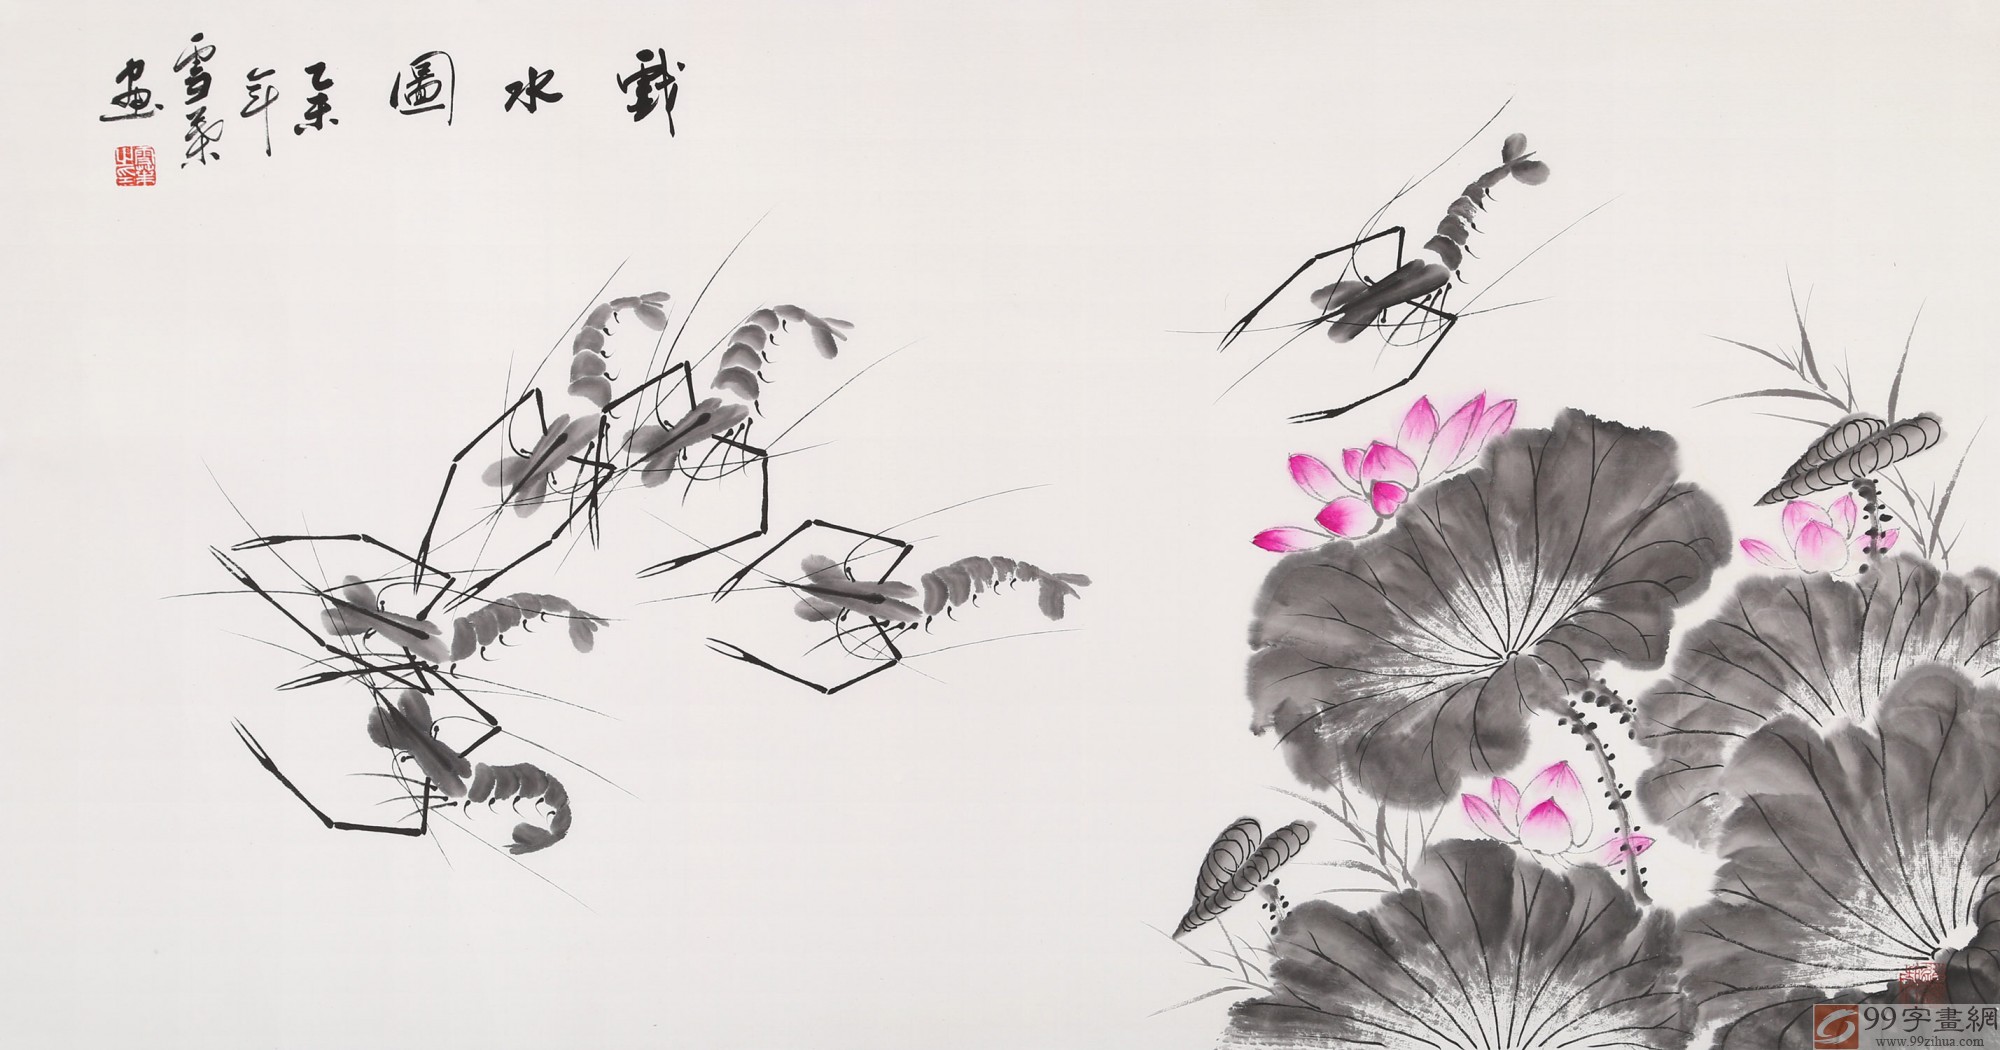 戲水圖
乙未
年
雪葉
畫
99字畫網
www.99zihua.com